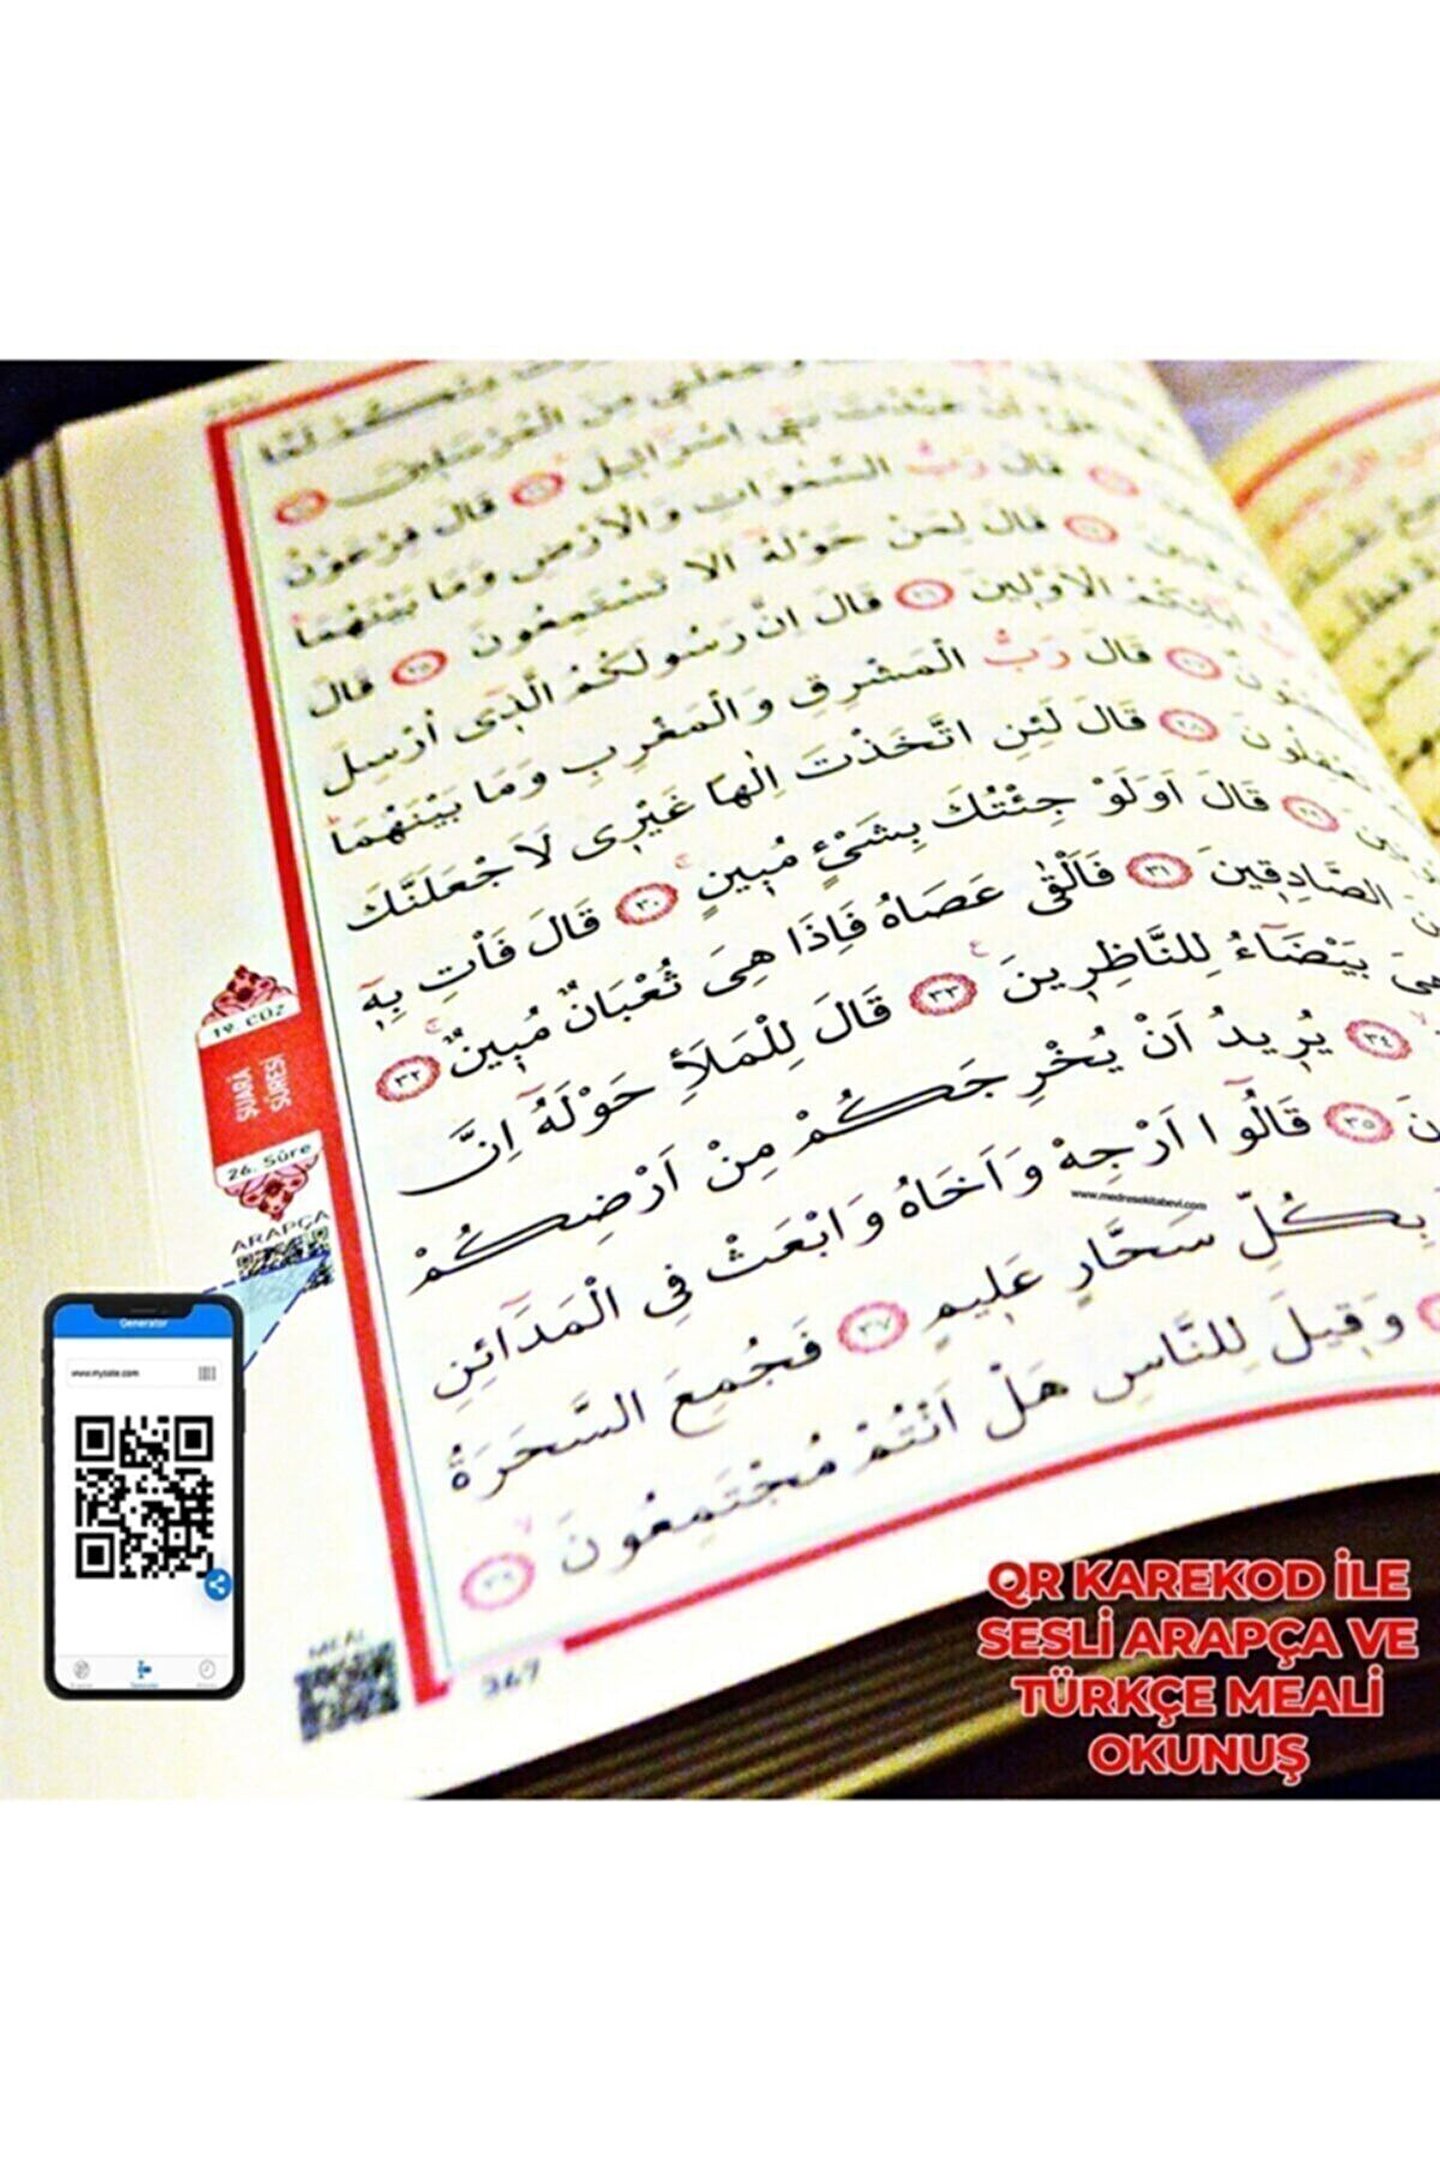 وَجَعَلَنِي مِنَ الْمُرْسَلِينَ
عَبَّدْتَ بَنِي اِسْرَائِيلَ قَالَ فِرْعَوْنُ
قَالَ رَبُّ السَّمٰوَاتِ وَالْاَرْضِ وَمَا بَيْنَهُمَا
قَالَ لِمَنْ حَوْلَهُ اَلَا تَسْتَمِعُونَ ٢٥ قَالَ
اٰبَائِكُمُ الْاَوَّلِينَ ٢٦ قَالَ اِنَّ رَسُولَكُمُ الَّذِى اُرْسِلَ
٢٧ قَالَ رَبُّ الْمَشْرِقِ وَالْمَغْرِبِ وَمَا بَيْنَهُمَا
تَعْقِلُونَ ٢٨ قَالَ لَئِنِ اتَّخَذْتَ اِلٰهًا غَيْرِى لَاَجْعَلَنَّكَ
٢٩ قَالَ اَوَلَوْ جِئْتُكَ بِشَىْءٍ مُبِينٍ ٣٠ قَالَ فَأْتِ بِهِ
الصَّادِقِينَ ٣١ فَاَلْقٰى عَصَاهُ فَاِذَا هِىَ ثُعْبَانٌ مُبِينٌ ٣٢
هِىَ بَيْضَاءُ لِلنَّاظِرِينَ ٣٣ قَالَ لِلْمَلَاِ حَوْلَهُ اِنَّ
٣٤ يُرِيدُ اَنْ يُخْرِجَكُمْ مِنْ اَرْضِكُمْ
٣٥ قَالُوا اَرْجِهْ وَاَخَاهُ وَابْعَثْ فِى الْمَدَائِنِ
بِكُلِّ سَحَّارٍ عَلِيمٍ ٣٧ فَجُمِعَ السَّحَرَةُ
وَقِيلَ لِلنَّاسِ هَلْ اَنْتُمْ مُجْتَمِعُونَ ٣٩
www.medresekitabevi.com
19. CÜZ
ŞUARA
SÛRESİ
26. Sûre
ARAPÇA
Generator
www.mysite.com
MEAL
367
QR KAREKOD İLE
SESLİ ARAPÇA VE
TÜRKÇE MEALİ
OKUNUŞ